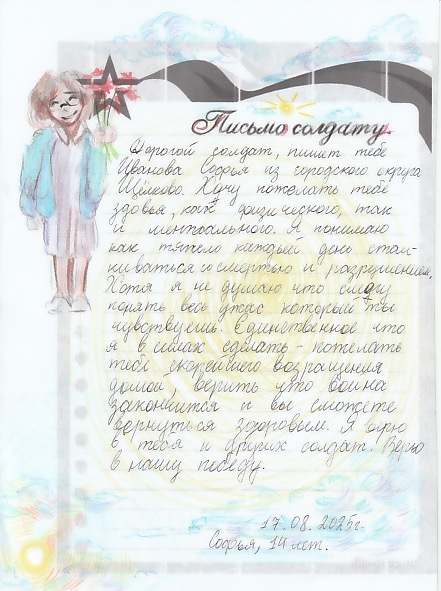 Письмо солдату.
Дорогой солдат, пишет тебе
Иванова Софья из городского округа
Щёлково. Хочу пожелать тебе
здовья, как физического, так
и ментального. Я понимаю
как тяжело каждый день стал-
киваться со смертью и разрушением,
Хотя я не думаю что смогу
понять весь ужас который ты
чувствуешь. Единственное что
я в силах сделать - пожелать
тебе скорейшего возращения
домой, верить что война
закончится и вы сможете
вернуться здоровым. Я верю
в тебя и других солдат. Верю
в нашу победу.
17.08.2025г.
Софья, 14 лет.